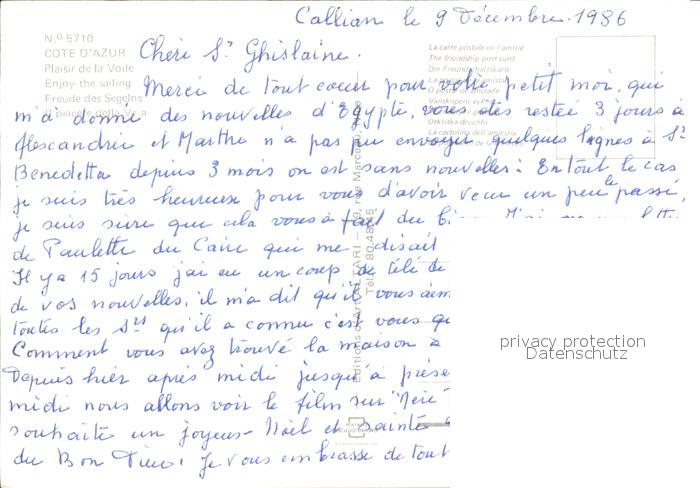 Callian le 9 Décembre 1986
N.º 5710
COTE D'AZUR
Plaisir de la Voile
Enjoy the sailing
Freude des Segelns
Il piacere della Vela
La carte postale de l'amitié
The friendship post card
Die Freundschaftskarte
Otkritka druchbi
La cartolina dell'amicizia
Chère Sr Ghislaine.
Merci de tout coeur pour votre petit moi, qui
m'a donné des nouvelles d'Egypte, vous dès restée 3 jours à
Alescandrie et Marthe n'a pas pu envoyer quelques lignes à Sr
Benedetta depuis 3 mois on est sans nouvelles: En tout le cas
je suis très heureuse pour vous d'avoir vecu un peu le passé,
je suis sûre que cela vous à fait du
de Paulette du Caire qui me disait
Il y a 15 jours j'ai eu un coup de télé de
de vos nouvelles, il m'a dit qu'il vous
toutes les Srs qu'il a connu c'est vous
Comment vous avez trouvé la maison à
Depuis hier après midi jusqu'à
midi nous allons voir le film sur
souhaite un joyeux-Noël et sainte
du Bon Dieu. Je vous embrasse de tout
privacy protection
Datenschutz